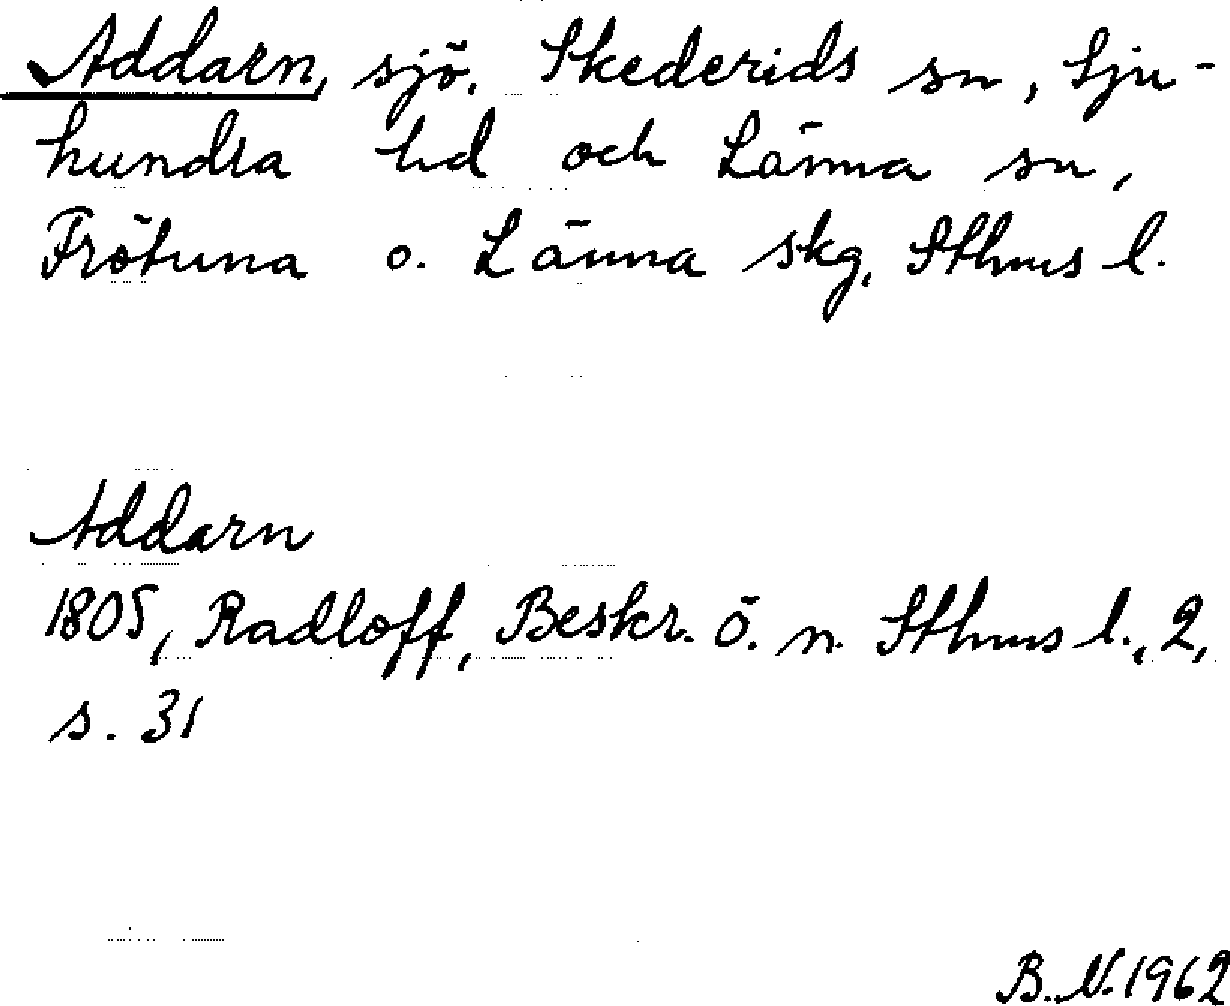 Addarn, sjö. Skederids sn, Sju-
hundra hd och Länna sn,
Frötuna o. Länna skg, Sthms l.
Addarn
1805, Radloff, Beskr. ö. n. Sthms l., 2,
s. 31
B. N. 1962